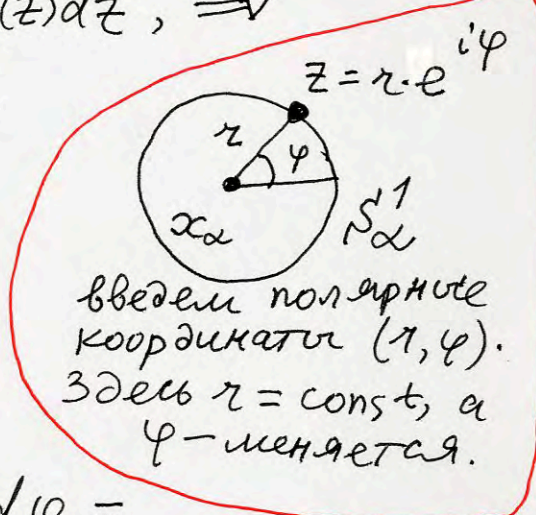 (z)dz, ⇒
z = r·e^{iφ}
r
φ
x_α
S^1_α
введем полярные
координаты (r, φ).
Здесь r = const, а
φ – меняется.